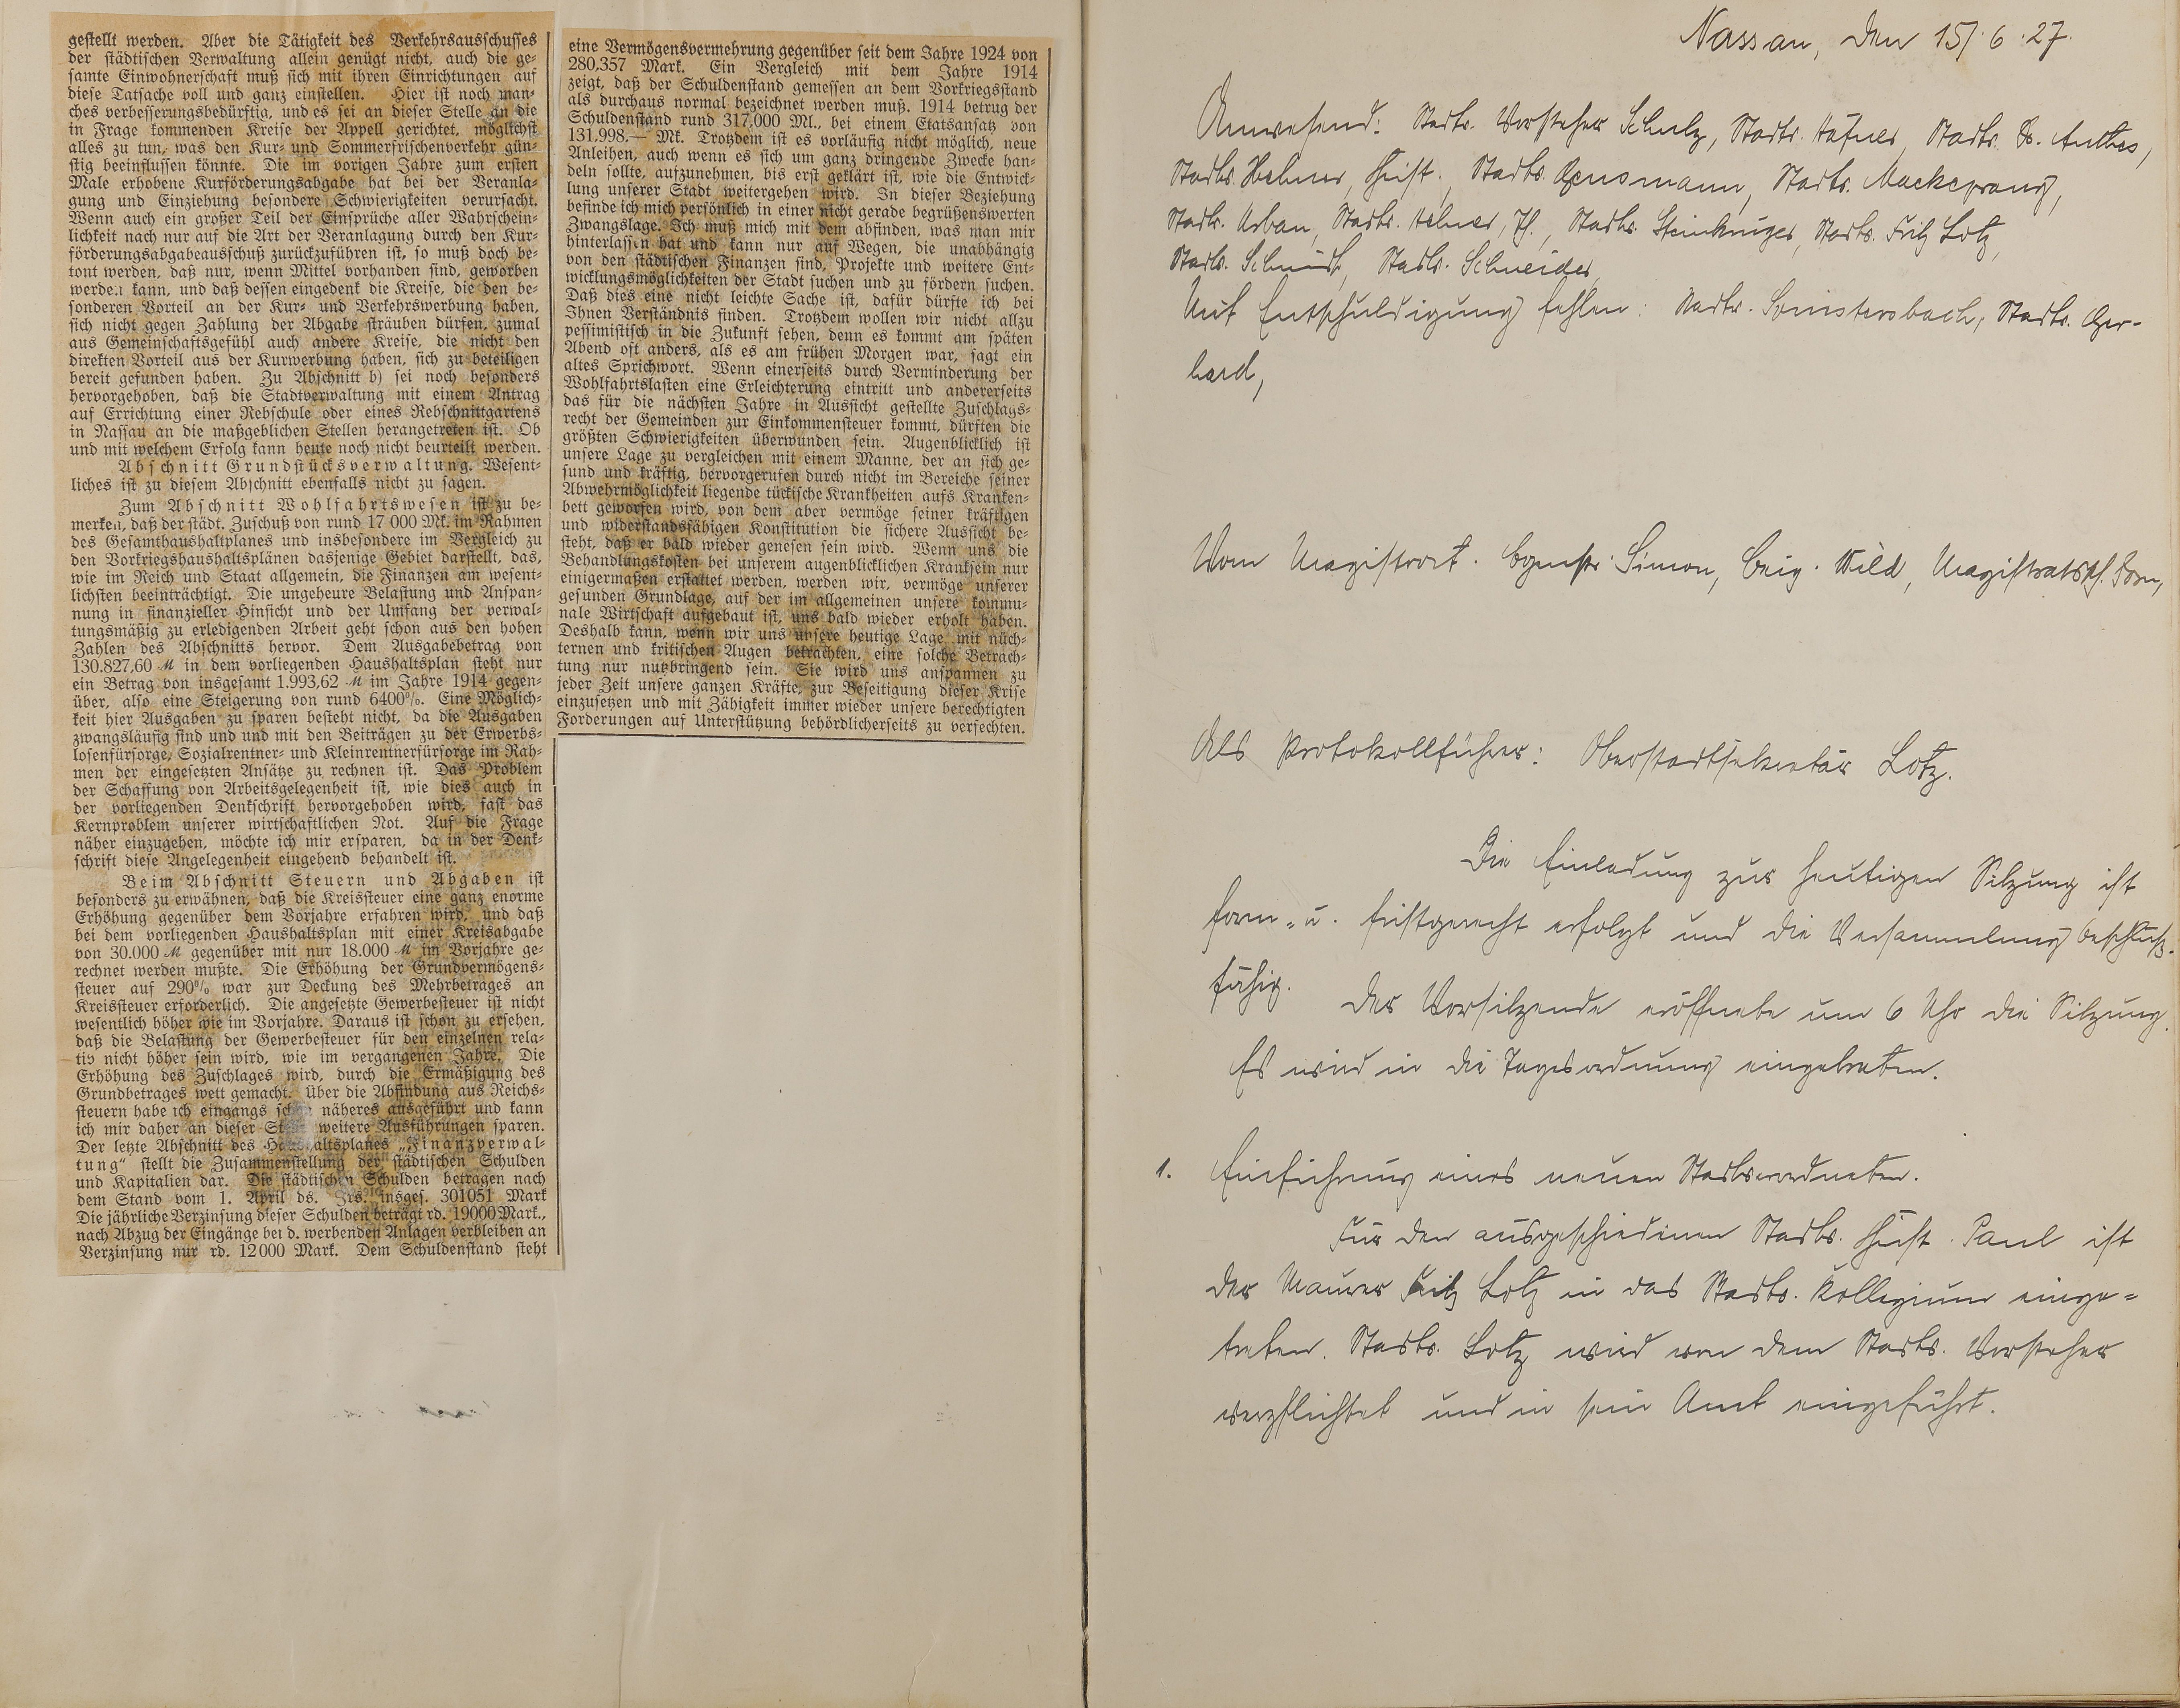 gestellt werden. Aber die Tätigkeit des Verkehrsausschusses
der städtischen Verwaltung allein genügt nicht, auch die ge-
samte Einwohnerschaft muß sich mit ihren Einrichtungen auf
diese Tatsache voll und ganz einstellen. Hier ist noch man-
ches verbesserungsbedürftig, und es sei an dieser Stelle an die
in Frage kommenden Kreise der Appell gerichtet, möglichst
alles zu tun, was den Kur- und Sommerfrischenverkehr gün-
stig beeinflussen könnte. Die im vorigen Jahre zum ersten
Male erhobene Kurförderungsabgabe hat bei der Veranla-
gung und Einziehung besondere Schwierigkeiten verursacht.
Wenn auch ein großer Teil der Einsprüche aller Wahrschein-
lichkeit nach nur auf die Art der Veranlagung durch den Kur-
förderungsabgabeausschuß zurückzuführen ist, so muß doch be-
tont werden, daß nur, wenn Mittel vorhanden sind, geworben
werden kann, und daß dessen eingedenk die Kreise, die den be-
sonderen Vorteil an der Kur- und Verkehrswerbung haben,
sich nicht gegen Zahlung der Abgabe sträuben dürfen, zumal
aus Gemeinschaftsgefühl auch andere Kreise, die nicht den
direkten Vorteil aus der Kurwerbung haben, sich zu beteiligen
bereit gefunden haben. Zu Abschnitt b) sei noch besonders
hervorgehoben, daß die Stadtverwaltung mit einem Antrag
auf Errichtung einer Rebschule oder eines Rebschnittgartens
in Nassau an die maßgeblichen Stellen herangetreten ist. Ob
und mit welchem Erfolg kann heute noch nicht beurteilt werden.
Abschnitt Grundstücksverwaltung. Wesent-
liches ist zu diesem Abschnitt ebenfalls nicht zu sagen.
Zum Abschnitt Wohlfahrtswesen ist zu be-
merken, daß der städt. Zuschuß von rund 17 000 Mk. im Rahmen
des Gesamthaushaltplanes und insbesondere im Vergleich zu
den Vorkriegshaushaltsplänen dasjenige Gebiet darstellt, das,
wie im Reich und Staat allgemein, die Finanzen am wesent-
lichsten beeinträchtigt. Die ungeheure Belastung und Anspan-
nung in finanzieller Hinsicht und der Umfang der verwal-
tungsmäßig zu erledigenden Arbeit geht schon aus den hohen
Zahlen des Abschnitts hervor. Dem Ausgabebetrag von
130.827,60 M in dem vorliegenden Haushaltsplan steht nur
ein Betrag von insgesamt 1.993,62 M im Jahre 1914 gegen-
über, also eine Steigerung von rund 6400%. Eine Möglich-
keit hier Ausgaben zu sparen besteht nicht, da die Ausgaben
zwangsläufig sind und und mit den Beiträgen zu der Erwerbs-
losenfürsorge, Sozialrentner- und Kleinrentnerfürsorge im Rah-
men der eingesetzten Ansätze zu rechnen ist. Das Problem
der Schaffung von Arbeitsgelegenheit ist, wie dies auch in
der vorliegenden Denkschrift hervorgehoben wird, fast das
Kernproblem unserer wirtschaftlichen Not. Auf die Frage
näher einzugehen, möchte ich mir ersparen, da in der Denk-
schrift diese Angelegenheit eingehend behandelt ist.
Beim Abschnitt Steuern und Abgaben ist
besonders zu erwähnen, daß die Kreissteuer eine ganz enorme
Erhöhung gegenüber dem Vorjahre erfahren wird, und daß
bei dem vorliegenden Haushaltsplan mit einer Kreisabgabe
von 30.000 M gegenüber mit nur 18.000 M im Vorjahre ge-
rechnet werden mußte. Die Erhöhung der Grundvermögens-
steuer auf 290% war zur Deckung des Mehrbetrages an
Kreissteuer erforderlich. Die angesetzte Gewerbesteuer ist nicht
wesentlich höher wie im Vorjahre. Daraus ist schon zu ersehen,
daß die Belastung der Gewerbesteuer für den einzelnen rela-
tiv nicht höher sein wird, wie im vergangenen Jahre. Die
Erhöhung des Zuschlages wird, durch die Ermäßigung des
Grundbetrages wett gemacht. Über die Abfindung aus Reichs-
steuern habe ich eingangs schon näheres ausgeführt und kann
ich mir daher an dieser Stelle weitere Ausführungen sparen.
Der letzte Abschnitt des Haushaltsplanes „Finanzverwal-
tung“ stellt die Zusammenstellung der städtischen Schulden
und Kapitalien dar. Die städtischen Schulden betragen nach
dem Stand vom 1. April ds. Jrs. insges. 301051 Mark
Die jährliche Verzinsung dieser Schulden beträgt rd. 19000 Mark.,
nach Abzug der Eingänge bei d. werbenden Anlagen verbleiben an
Verzinsung nur rd. 12000 Mark. Dem Schuldenstand steht
eine Vermögensvermehrung gegenüber seit dem Jahre 1924 von
280.357 Mark. Ein Vergleich mit dem Jahre 1914
zeigt, daß der Schuldenstand gemessen an dem Vorkriegsstand
als durchaus normal bezeichnet werden muß. 1914 betrug der
Schuldenstand rund 317.000 Ml., bei einem Etatsansatz von
131.998.— Mk. Trotzdem ist es vorläufig nicht möglich, neue
Anleihen, auch wenn es sich um ganz dringende Zwecke han-
deln sollte, aufzunehmen, bis erst geklärt ist, wie die Entwick-
lung unserer Stadt weitergehen wird. In dieser Beziehung
befinde ich mich persönlich in einer nicht gerade begrüßenswerten
Zwangslage. Ich muß mich mit dem abfinden, was man mir
hinterlassen hat und kann nur auf Wegen, die unabhängig
von den städtischen Finanzen sind, Projekte und weitere Ent-
wicklungsmöglichkeiten der Stadt suchen und zu fördern suchen.
Daß dies eine nicht leichte Sache ist, dafür dürfte ich bei
Ihnen Verständnis finden. Trotzdem wollen wir nicht allzu
pessimistisch in die Zukunft sehen, denn es kommt am späten
Abend oft anders, als es am frühen Morgen war, sagt ein
altes Sprichwort. Wenn einerseits durch Verminderung der
Wohlfahrtslasten eine Erleichterung eintritt und andererseits
das für die nächsten Jahre in Aussicht gestellte Zuschlags-
recht der Gemeinden zur Einkommensteuer kommt, dürften die
größten Schwierigkeiten überwunden sein. Augenblicklich ist
unsere Lage zu vergleichen mit einem Manne, der an sich ge-
sund und kräftig, hervorgerufen durch nicht im Bereiche seiner
Abwehrmöglichkeit liegende tückische Krankheiten aufs Kranken-
bett geworfen wird, von dem aber vermöge seiner kräftigen
und widerstandsfähigen Konstitution die sichere Aussicht be-
steht, daß er bald wieder genesen sein wird. Wenn uns die
Behandlungskosten bei unserem augenblicklichen Kranksein nur
einigermaßen erstattet werden, werden wir, vermöge unserer
gesunden Grundlage, auf der im allgemeinen unsere kommu-
nale Wirtschaft aufgebaut ist, uns bald wieder erholt haben.
Deshalb kann, wenn wir uns unsere heutige Lage mit nüch-
ternen und kritischen Augen betrachten, eine solche Betrach-
tung nur nutzbringend sein. Sie wird uns anspannen zu
jeder Zeit unsere ganzen Kräfte, zur Beseitigung dieser Krise
einzusetzen und mit Zähigkeit immer wieder unsere berechtigten
Forderungen auf Unterstützung behördlicherseits zu verfechten.
Nassau, den 15/.6.27.
Anwesend: Stadtv. Vorsteher Schulz, Stadtv. Häfner, Stadtv. Dr. Anthes,
Stadtv. Hehner, Stadtv. Gensmann, Stadtv. Mackeprang,
Stadtv. Urban, Stadtv. Hehner, Stadtv. Steinkrüger, Stadtv. Fritz Lotz,
Stadtv. Schmidt, Stadtv. Schneider,
Mit Entschuldigung fehlen: Stadtv. Stadtv. Ger-
hard,
Vom Magistrat. Bgmstr. Simon, Beig. Wild, Magistratssch. Born,
Als Protokollführer: Oberstadtsekretär Lotz.
Die Einladung zur heutigen Sitzung ist
form- u. fristgerecht erfolgt und die Versammlung beschluß-
fähig.
Der Vorsitzende eröffnete um 6 Uhr die Sitzung.
Es wird in die Tagesordnung eingetreten.
1. Einführung eines neuen Stadtverordneten.
Für den ausgeschiedenen Stadtv. Paul ist
der Maurer Fritz Lotz in das Stadtv. Kollegium einge-
treten. Stadtv. Lotz wird von dem Stadtv. Vorsteher
verpflichtet und in sein Amt eingeführt.